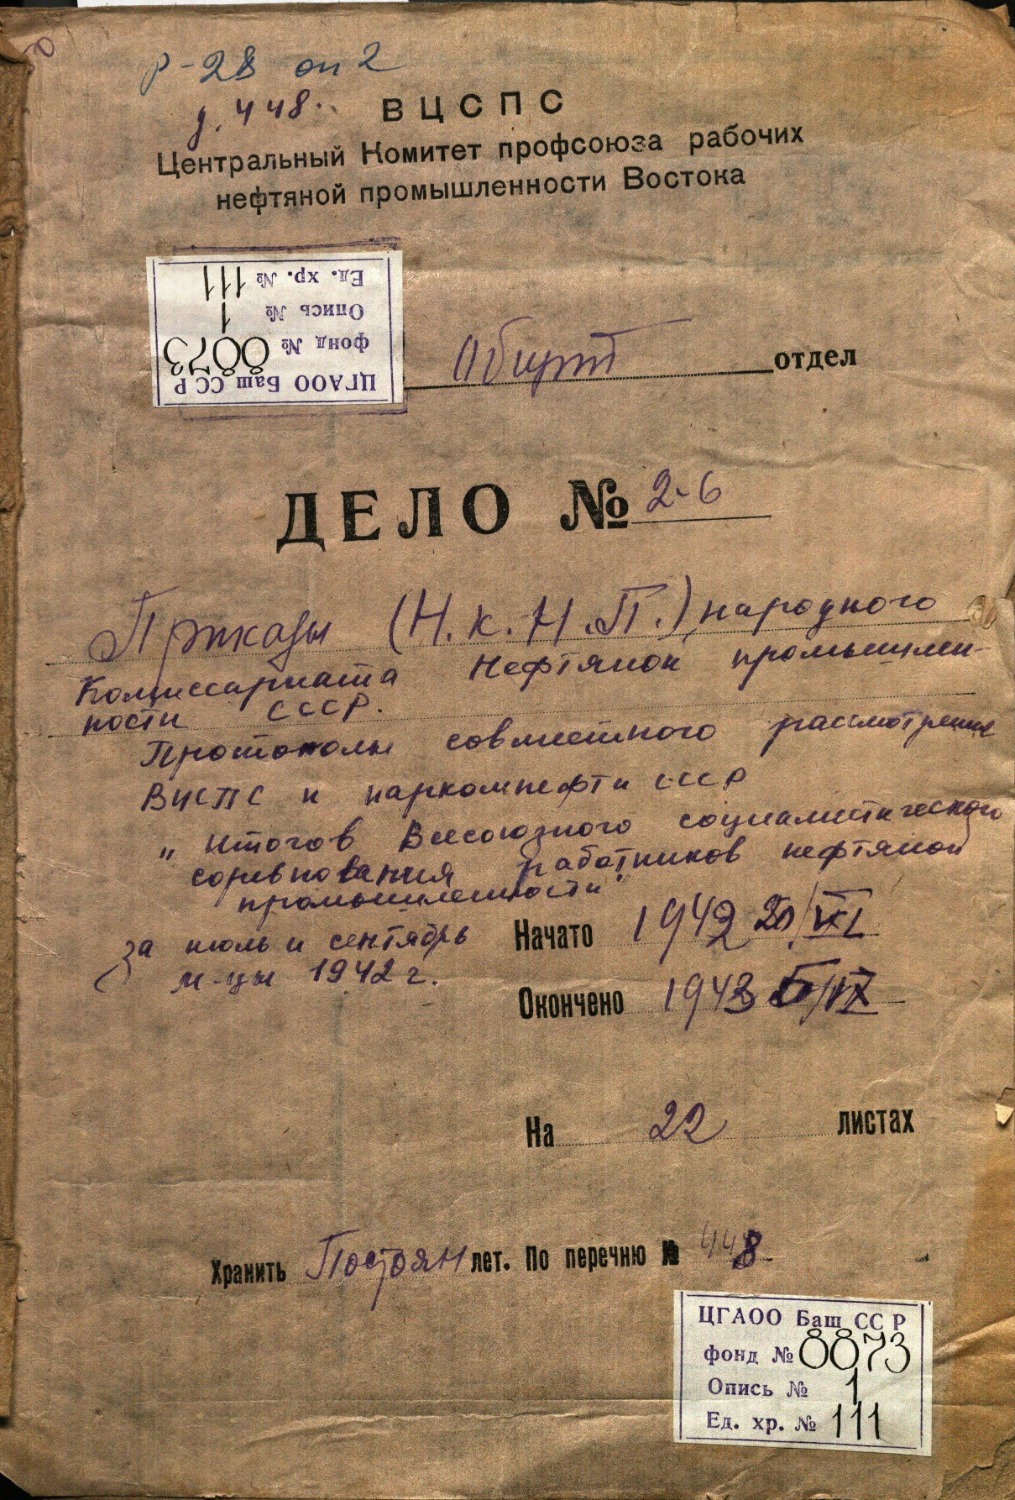 Р-28 оп 2
д. 448.
ВЦСПС
Центральный Комитет профсоюза рабочих
нефтяной промышленности Востока
ЦГАОО Баш ССР
фонд № 8873
Опись № 1
Ед. хр. № 111
отдел
ДЕЛО № 2-6
Приказы (Н.К.Н.П.) народного
Комиссариата Нефтяной промышлен-
ности СССР.
Протоколы совместного рассмотрения
ВЦСПС и наркомнефти СССР
„Итогов Всесоюзного социалистического
соревнования работников нефтяной
промышленности"
за июль и сентябрь
м-цы 1942 г.
Начато 1942
Окончено 1943
На 22 листах
Хранить Постоян лет. По перечню № 448
ЦГАОО Баш ССР
фонд № 8873
Опись № 1
Ед. хр. № 111